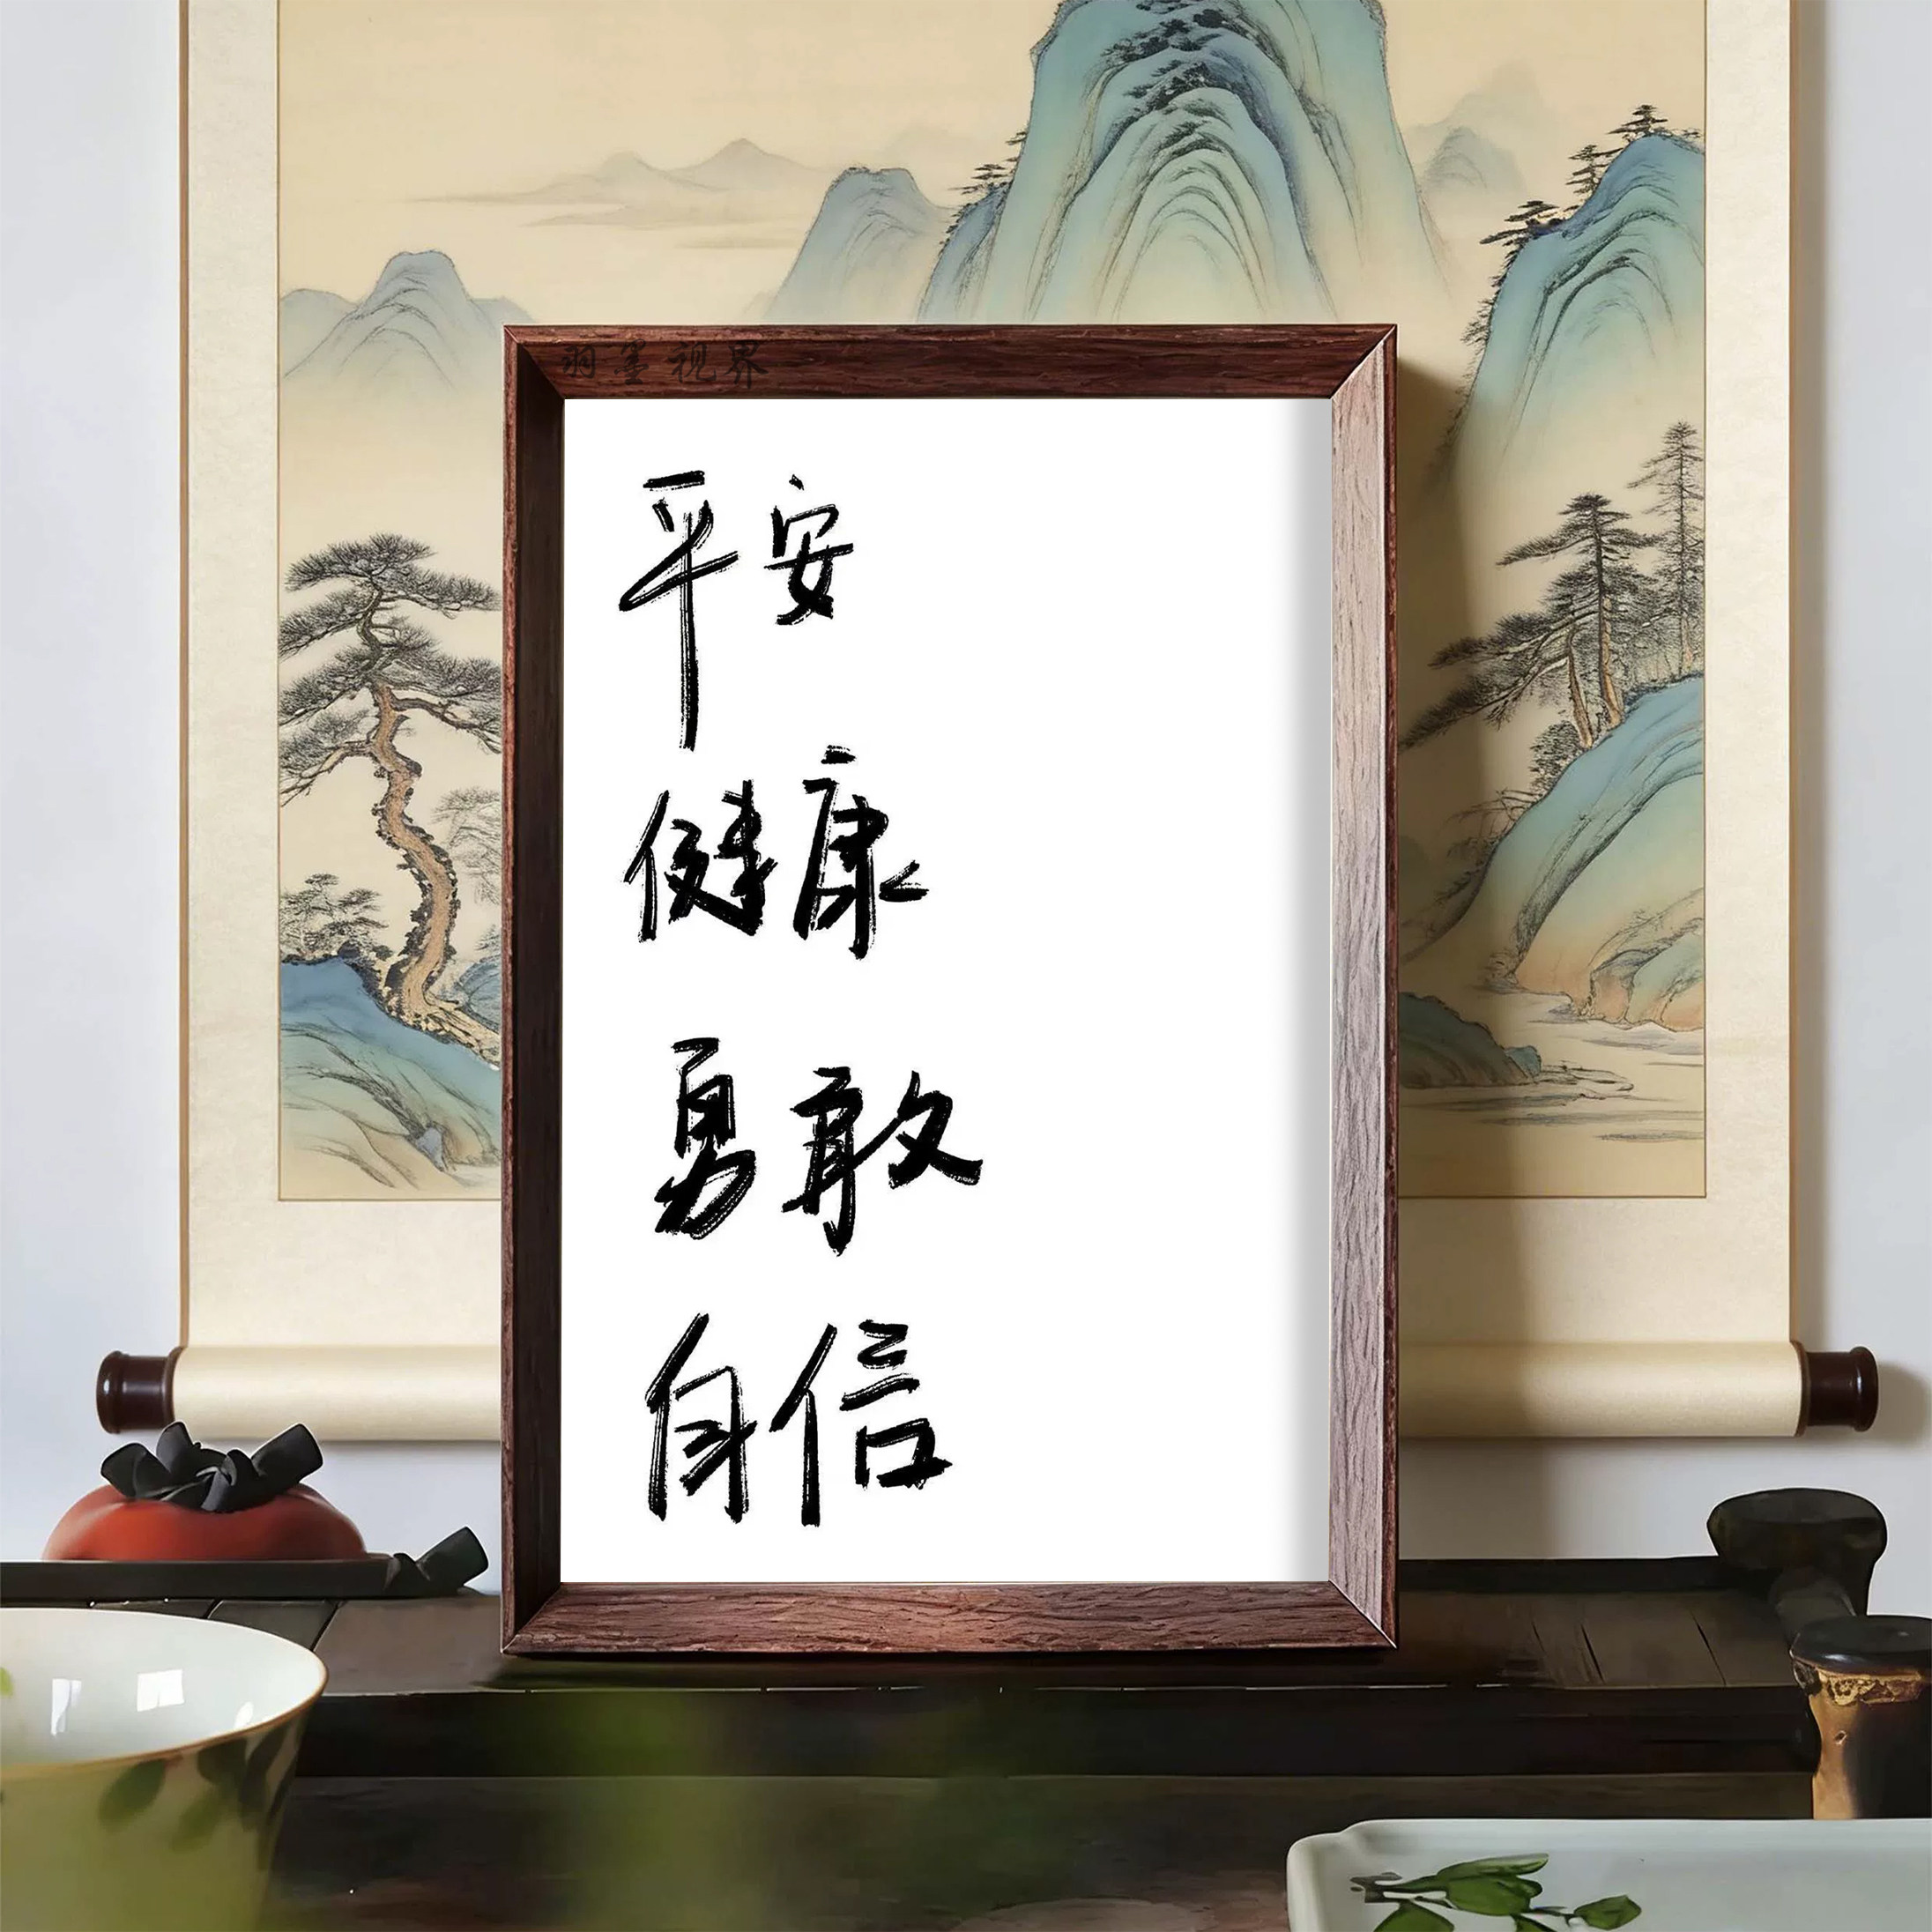 羽墨视界
平安
健康
勇敢
自信